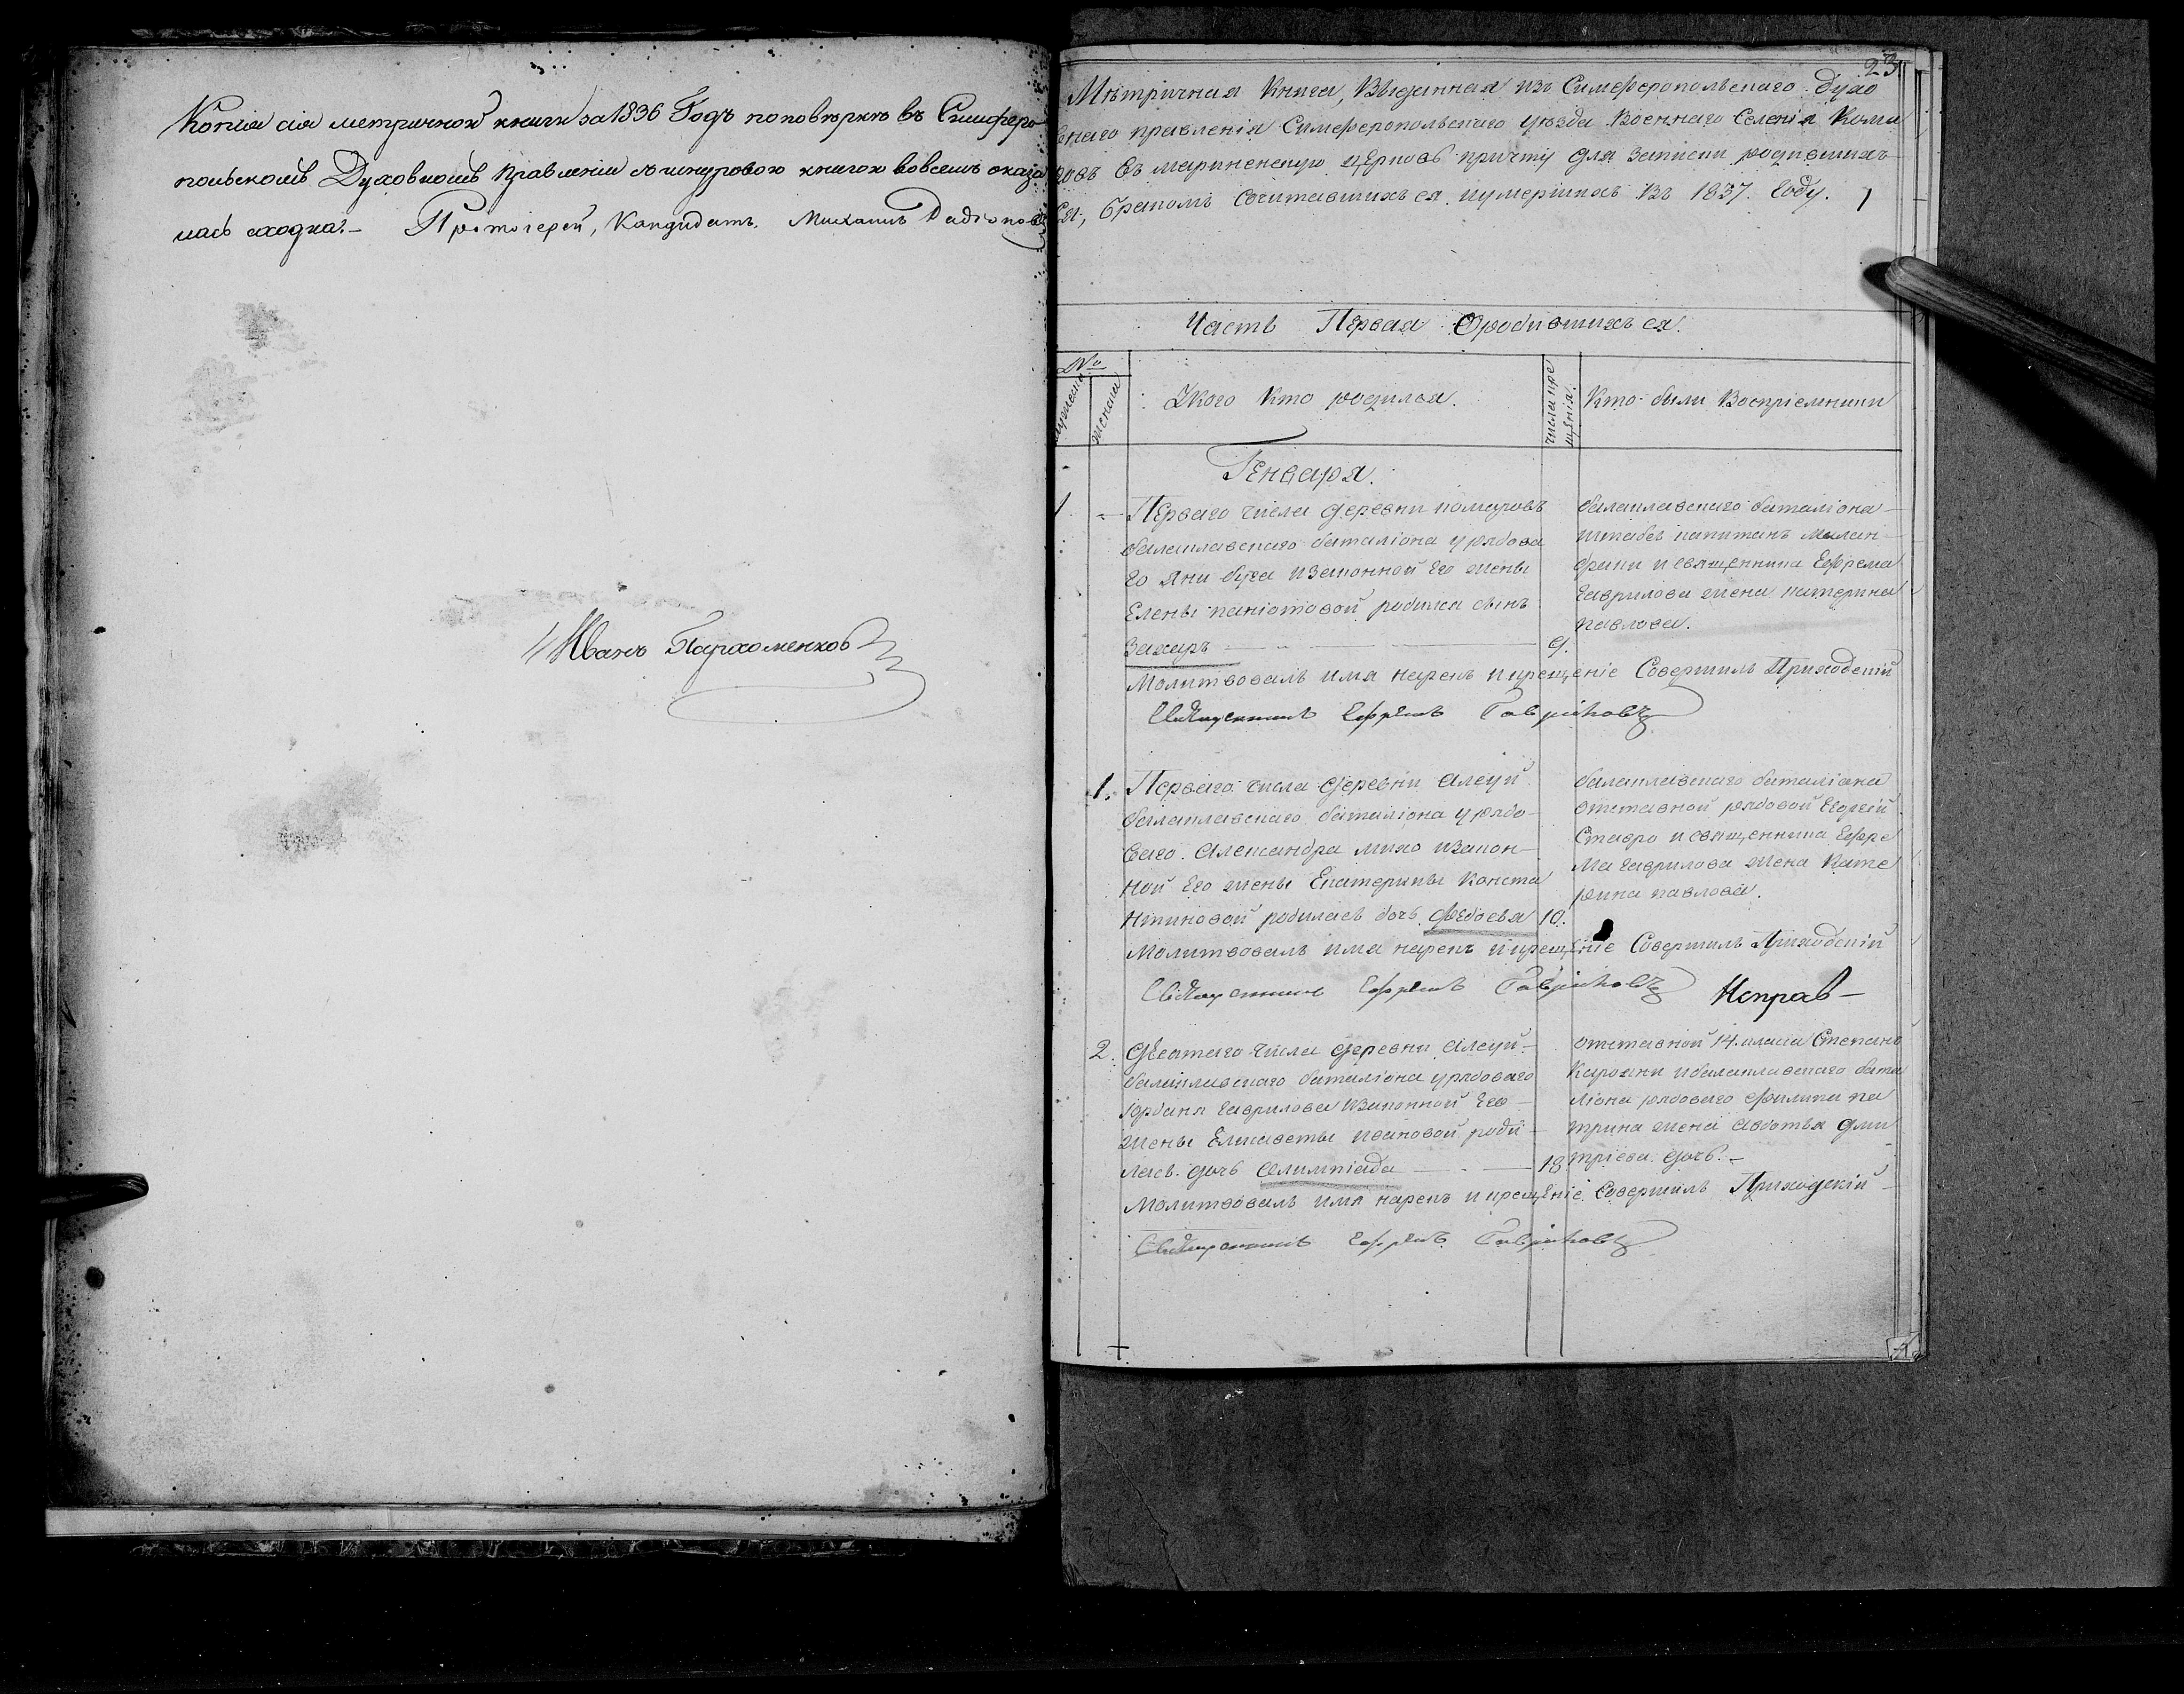 Копія сія метричной книги за 1836 Годъ поповѣркѣ въ Симферо
польскомъ Духовномъ Правленіи съ шнуровою книгою вовсемъ оказа
лась сходна. – Протоіерей, Кандидатъ, Михаилъ
Иванъ Пархоменков
23
Мѣтричная Книга, Выданная изъ Симферопольскаго Духо
внаго правленія Симферопольскаго уѣзда Военнаго Селенія Кома
ровъ въ марiинскую церковь причту для записки родившихъ
ся, бракомъ сочитавшихъ ся, иумершихъ Въ 1837. Году. 1
Часть Первая Ородившихъ ся.
№
мужеска
женска
Укого кто родился.
числа кре
щенія.
Кто были Воспріемники
Генваря.
1. – Перваго числа деревни комаровъ
балаклавскаго баталіона у рядова
го Яни буга изаконной его жены
Елены паніотовой родился сынъ
Захаръ 9.
балаклавскаго баталіона
штабсъ капитанъ
и священника Ефрема
Гаврилова жена катерина
павлова.
Молитвовалъ имя нарекъ и крещеніе Совершилъ Приходскій
Священникъ Ефремъ Гавриловъ
1. Перваго числа деревни алсуй
балаклавскаго баталіона у рядо
ваго Александра михо изакон
ной его жены Екатерины Конста
нтиновой родилась дочь Федосья 10.
балаклавскаго баталіона
отставной рядовой Георгій
Ставро и священника Ефре
ма Гаврилова жена Кате
рина павлова.
Молитвовалъ имя нарекъ и крещеніе Совершилъ Приходскій
Священникъ Ефремъ Гавриловъ
Исправ –
2. Девятаго числа деревни алсуй
балаклавскаго баталіона у рядоваго
Іордана гаврилова изаконной его
жены Елисаветы ивановой роди
лась дочь Олимпіада 18
отставной 14. класа Степанъ
и балаклавскаго бата
ліона рядоваго филипа па
трика жена дми
тріева дочь. –
Молитвовалъ имя нарекъ и крещеніе Совершилъ Приходскій
Священникъ Ефремъ Гавриловъ